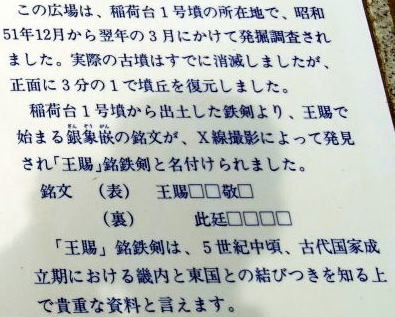 この広場は、稲荷台１号墳の所在地で、昭和
51年12月から翌年の３月にかけて発掘調査され
ました。実際の古墳はすでに消滅しましたが、
正面に３分の１で墳丘を復元しました。
稲荷台１号墳から出土した鉄剣より、王賜で
始まる銀象嵌の銘文が、Ｘ線撮影によって発見
され「王賜」銘鉄剣と名付けられました。
銘文　（表）　王賜□□敬□
（裏）　此廷□□□□
「王賜」銘鉄剣は、５世紀中頃、古代国家成
立期における畿内と東国との結びつきを知る上
で貴重な資料と言えます。